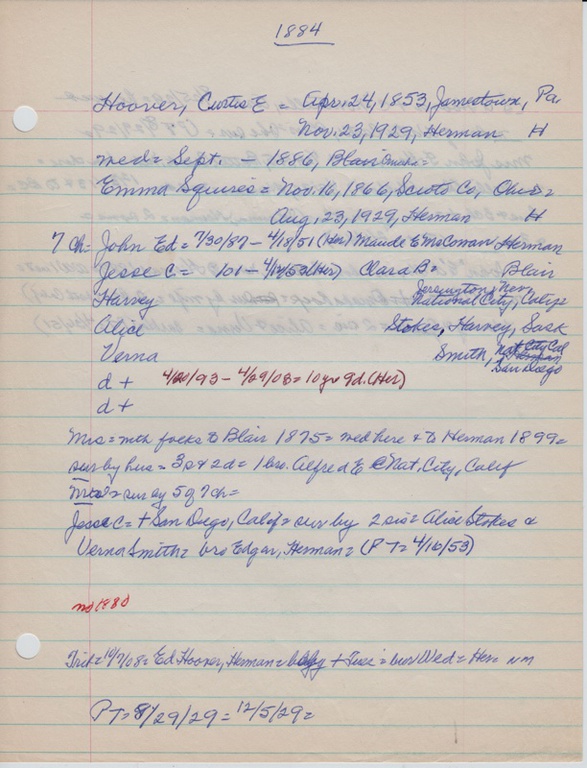 1884
Hoover, Curtis E = Apr. 24, 1853, Jamestown, Pa.
Nov. 23, 1929, Herman H
med = Sept. - 1886, Blair
Emma Squires = Nov. 16, 1866, Scioto Co, Ohio =
Aug. 23, 1929, Herman H
7 Ch = John Ed = 7/30/87 - 4/18/51 (Her) Maude E McComan Herman
Jesse C = 101 - 4/12/53 (Her) Clara B = Blair
Yerington, Nev
Harvey National City, Calif
Alice Stokes, Harvey, Sask
Verna Smith, Nat City Cal
San Diego
d + 4/20/93 - 4/29/03 = 10 yr 9 d. (Her)
d +
Mrs = with folks to Blair 1875 = med here & to Herman 1899 =
sur by hus = 3 s & 2 d = 1 bro. Alfred E Nat. City, Calif
sur by 5 of 7 ch =
Jesse C = + San Diego, Calif = sur by 2 sis = Alice Stokes &
Verna Smith = bro Edgar, Herman = (PT = 4/16/53)
no 1880
Trib = 10/7/08 = Ed Hoover, Herman = baby + Tues = bur Wed = Her = nn
PT = 8/29/29 = 12/5/29 =